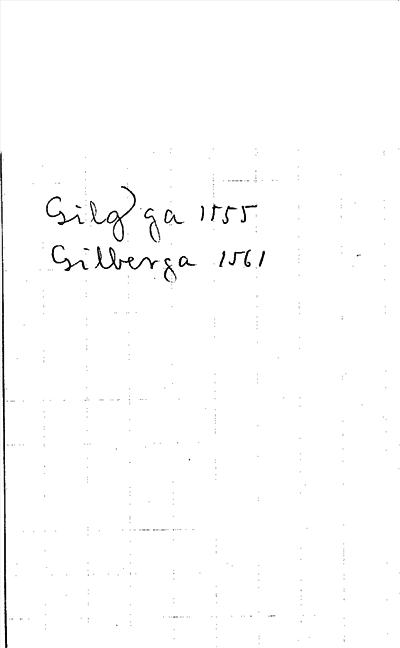 Gilbꝰga 1555
Gilberga 1561